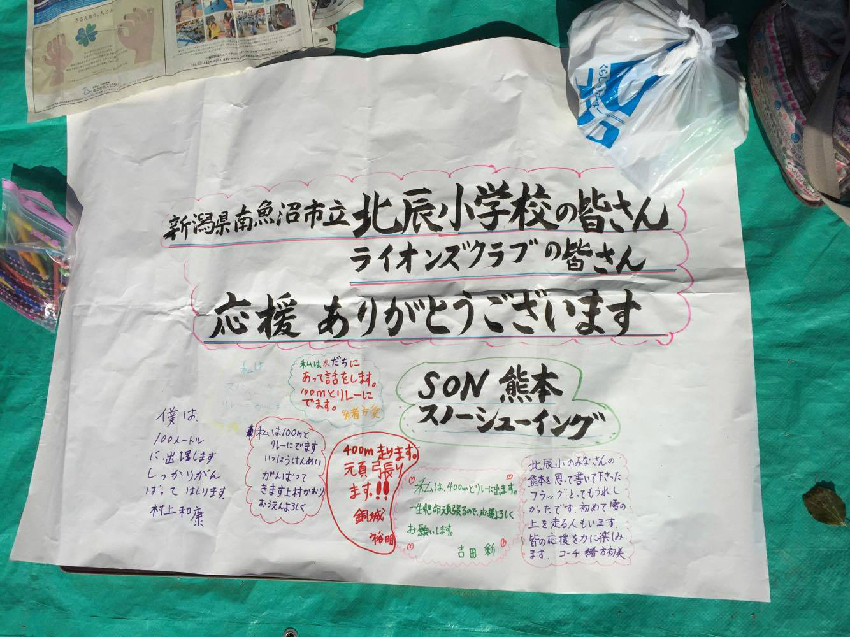 新潟県南魚沼市立北辰小学校の皆さん
ライオンズクラブの皆さん
応援 ありがとうございます
SON 熊本
スノーシューイング
私は友だちに
あって話をします。
100mとリレーに
でます。
僕は、
100メートル
に出場します
しっかりがん
ばって はしります
村上和康
私は100mと
リレーにでます
いっしょうけんめい
がんばって
きます上村かおり
おうえんよろしく
400m 走ります。
元頁張り
ます!!
銅城
私は、400mとリレーに出ます。
一生懸命頑張るので、応援よろしく
お願いします。
吉田 彩
北辰小のみなさんの
熊本を思って書いて下さった
フラッグとってもうれし
かったです。初めて雪の
上を走る人もいます。
皆の応援を力に楽しみ
ます。コーチ 緒方